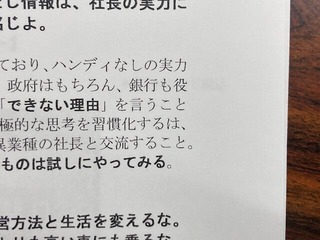 し情報は、社長の実力に
命じよ。
ており、ハンディなしの実力
政府はもちろん、銀行も役
「できない理由」を言うこと
極的な思考を習慣化するは、
異業種の社長と交流すること。
ものは試しにやってみる。
営方法と生活を変えるな。